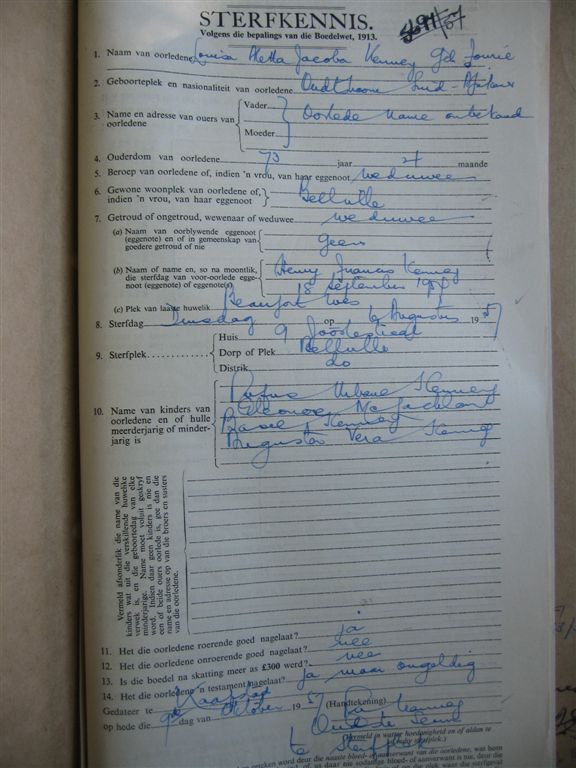 STERFKENNIS.
Volgens die bepalings van die Boedelwet, 1913.
1. Naam van oorledene Louisa Aletta Jacoba Kenney Geb Fourie
2. Geboorteplek en nasionaliteit van oorledene Oudtshoorn Suid-Afrikaans
3. Name en adresse van ouers van oorledene
Vader
Moeder
Oorlede Name onbekend
4. Ouderdom van oorledene 73 jaar 4 maande
5. Beroep van oorledene of, indien 'n vrou, van haar eggenoot weduwee
6. Gewone woonplek van oorledene of, indien 'n vrou, van haar eggenoot
Bellville
7. Getroud of ongetroud, wewenaar of weduwee weduwee
(a) Naam van oorblywende eggenoot (eggenote) en of in gemeenskap van goedere getroud of nie
geen
(b) Naam of name en, so na moontlik, die sterfdag van voor-oorlede eggenoot (eggenote) of eggenotes
Henry Francis Kenney
18 September
(c) Plek van laaste huwelik Beaufort Wes
8. Sterfdag Dinsdag op 6 Augustus 1957
9. Sterfplek
Huis 9
Dorp of Plek Bellville
Distrik do
10. Name van kinders van oorledene en of hulle meerderjarig of minderjarig is
Rufus Urbane Kenney
Eleonore
Basil Kenney
Augusta Vera Kenney
Vermeld afsonderlik die name van die kinders wat uit die verskillende huwelike verwek is, en die geboortedag van elke minderjarige. Name moet voluit geskryf word. Indien daar geen kinders is nie en een of beide ouers oorlede is, gee dan die name en adresse op van die broers en susters van die oorledene.
11. Het die oorledene roerende goed nagelaat? ja
12. Het die oorledene onroerende goed nagelaat? nee
13. Is die boedel na skatting meer as £300 werd? nee
14. Het die oorledene 'n testament nagelaat? ja maar ongeldig
Gedateer te Kaapstad
op hede die 9de dag van Oktober 1957
(Handtekening) Kenney
Oudste seun
(Vermeld in watter hoedanigheid en of aldan te
te sterfplek